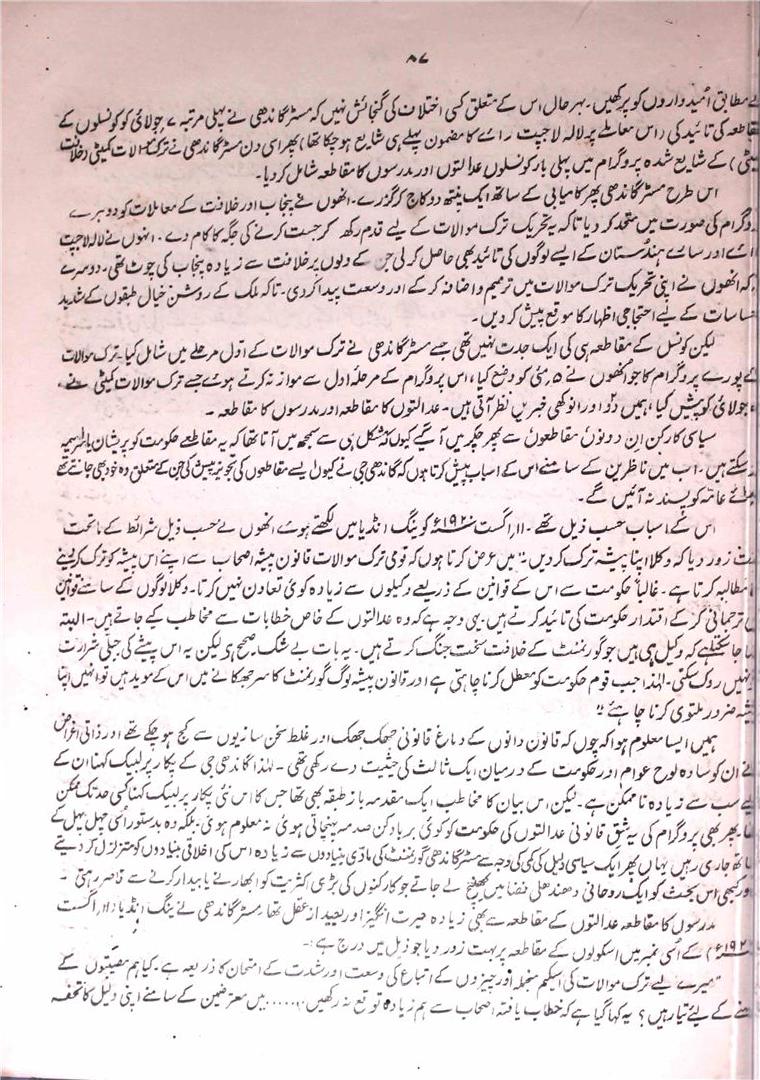 ۸۷
مطابق امیدواروں کو پرکھیں۔ بہرحال اس کے متعلق کسی اختلاف کی گنجائش نہیں کہ مسٹر گاندھی نے پہلی مرتبہ ۷؍ جولائی کو کونسلوں کے
مقاطعہ کی تائید کی (اس معاملے پر لالہ لاجپت رائے کا مضمون پہلے ہی شایع ہوچکا تھا) پھر اسی دن مسٹر گاندھی نے ترک موالات کمیٹی (خلافت
کے شایع شدہ پروگرام میں پہلی بار کونسلوں عدالتوں اور مدرسوں کا مقاطعہ شامل کر دیا۔
اس طرح مسٹر گاندھی پھر کامیابی کے ساتھ ایک پنتھ دو کاج کر گزرے۔ انھوں نے پنجاب اور خلافت کے معاملات کو دوہرے
پروگرام کی صورت میں متحد کر دیا تاکہ یہ تحریک ترک موالات کے لیے قدم رکھ کر جست کرنے کی جگہ کا کام دے۔ انہوں نے لالہ لاجپت
اور سارے ہندُستان کے ایسے لوگوں کی تائید بھی حاصل کرلی جن کے دلوں پر خلافت سے زیادہ پنجاب کی چوٹ تھی۔ دوسرے
کہ انھوں نے اپنی تحریک ترک موالات میں ترمیم و اضافہ کرکے اور وسعت پیدا کردی۔ تاکہ ملک کے روشن خیال طبقوں کے شدید
احساسات کے لیے احتجاجی اظہار کا موقع پیش کر دیں۔
لیکن کونسل کے مقاطعہ ہی کی ایک جدت نہیں تھی جسے مسٹر گاندھی نے ترک موالات کے اول مرحلے میں شامل کیا۔ ترک موالات
کے پورے پروگرام کا جو انھوں نے ۵؍ مئی کو وضع کیا، اس پروگرام کے مرحلۂ اول سے موازنہ کرتے ہوئے جسے ترک موالات کمیٹی نے
جولائی کو پیش کیا، ہمیں دو اور انوکھی خبریں نظر آتی ہیں۔ عدالتوں کا مقاطعہ اور مدرسوں کا مقاطعہ۔
سیاسی کارکن اِن دونوں مقاطعوں سے پھر چکر میں آگیے کیوں کہ مشکل ہی سے سمجھ میں آتا تھا کہ یہ مقاطعے حکومت کو پریشان یا سراسیمہ
سکتے ہیں۔ اب میں ناظرین کے سامنے اس کے اسباب پیش کرتا ہوں کہ گاندھی جی نے کیوں ایسے مقاطعوں کی تجویز پیش کی جن کے متعلق وہ خود بھی جانتے تھے
عامہ کو پسند نہ آئیں گے۔
اس کے اسباب حسب ذیل تھے۔ ۱۱؍ اگست ۱۹۲۰ء کو ینگ انڈیا میں لکھتے ہوئے انھوں نے حسب ذیل شرائط کے ماتحت
زور دیا کہ وکلا اپنا پیشہ ترک کردیں "میں عرض کرتا ہوں کہ قومی ترک موالات قانون پیشہ اصحاب سے اپنے اس پیشہ کو ترک کر لینے
مطالبہ کرتا ہے۔ غالباً حکومت سے اس کے قوانین کے ذریعے وکیلوں سے زیادہ کوئی تعاون نہیں کرتا۔ وکلا لوگوں کے سامنے قوانین
ترجمانی کرکے اقتدار حکومت کی تائید کرتے ہیں۔ یہی وجہ ہے کہ وہ عدالتوں کے خاص خطابات سے مخاطب کیے جاتے ہیں۔ البتہ
جا سکتا ہے کہ وکیل ہی ہیں جو گورنمنٹ کے خلاف سخت جنگ کرتے ہیں۔ یہ بات بے شک صحیح ہے لیکن یہ اس پیشے کی جبلّی شرارت
نہیں روک سکتی۔ لہٰذا جب قوم حکومت کو معطل کرنا چاہتی ہے اور قانون پیشہ لوگ گورنمنٹ کا سر جھکانے میں اس کے موید ہیں تو انہیں اپنا
پیشہ ضرور ملتوی کرنا چاہیے"
ہمیں ایسا معلوم ہوا کہ چوں کہ قانون دانوں کے دماغ قانونی جھک جھک اور غلط سخن سازیوں سے کج ہو چکے تھے اور ذاتی اغراض
نے ان کو سادہ لوح عوام اور حکومت کے درمیان ایک ثالث کی حیثیت دے رکھی تھی۔ لہٰذا گاندھی جی کے پکار پر لبیک کہنا ان کے
لیے سب سے زیادہ ناممکن ہے۔ لیکن اس بیان کا مخاطب ایک مقدمہ باز طبقہ بھی تھا جس کا اس نئی پکار پر لبیک کہنا کسی حد تک ممکن
تھا۔ پھر بھی پروگرام کی یہ شق قانونی عدالتوں کی حکومت کو کوئی برباد کن صدمہ پہنچاتی ہوئی نہ معلوم ہوئی۔ بلکہ وہ بدستور اسی چہل پہل کے
ساتھ جاری رہیں یہاں پھر ایک سیاسی دلیل کی کمی کی وجہ سے مسٹر گاندھی گورنمنٹ کی مادی بنیادوں سے زیادہ اس کی اخلاقی بنیادوں کو متزلزل کر دیتے
اور کبھی اس بحث کو ایک روحانی دھندھلی فضا میں کھینچ لے جاتے جو کارکنوں کی بڑی اکثریت کو ابھارنے یا بیدار کرنے سے قاصر رہتی۔
مدرسوں کا مقاطعہ عدالتوں کے مقاطعہ سے بھی زیادہ حیرت انگیز اور بعید از عقل تھا۔ مسٹر گاندھی نے ینگ انڈیا (۱۱؍ اگست
۱۹۲۰ء) کے اُسی نمبر میں اسکولوں کے مقاطعہ پر بہت زور دیا جو ذیل میں درج ہے:۔
"میرے لیے ترک موالات کی اسکیم منجملہ اور چیزوں کے اتباع کی وسعت اور شدت کے امتحان کا ذریعہ ہے۔ کیا ہم مصیبتوں کے
کے لیئے تیار ہیں؟ یہ کہا گیا ہے کہ خطاب یافتہ اصحاب سے ہم زیادہ توقع نہ رکھیں، ..... میں معترضین کے سامنے اپنی دلیل کا تحفہ